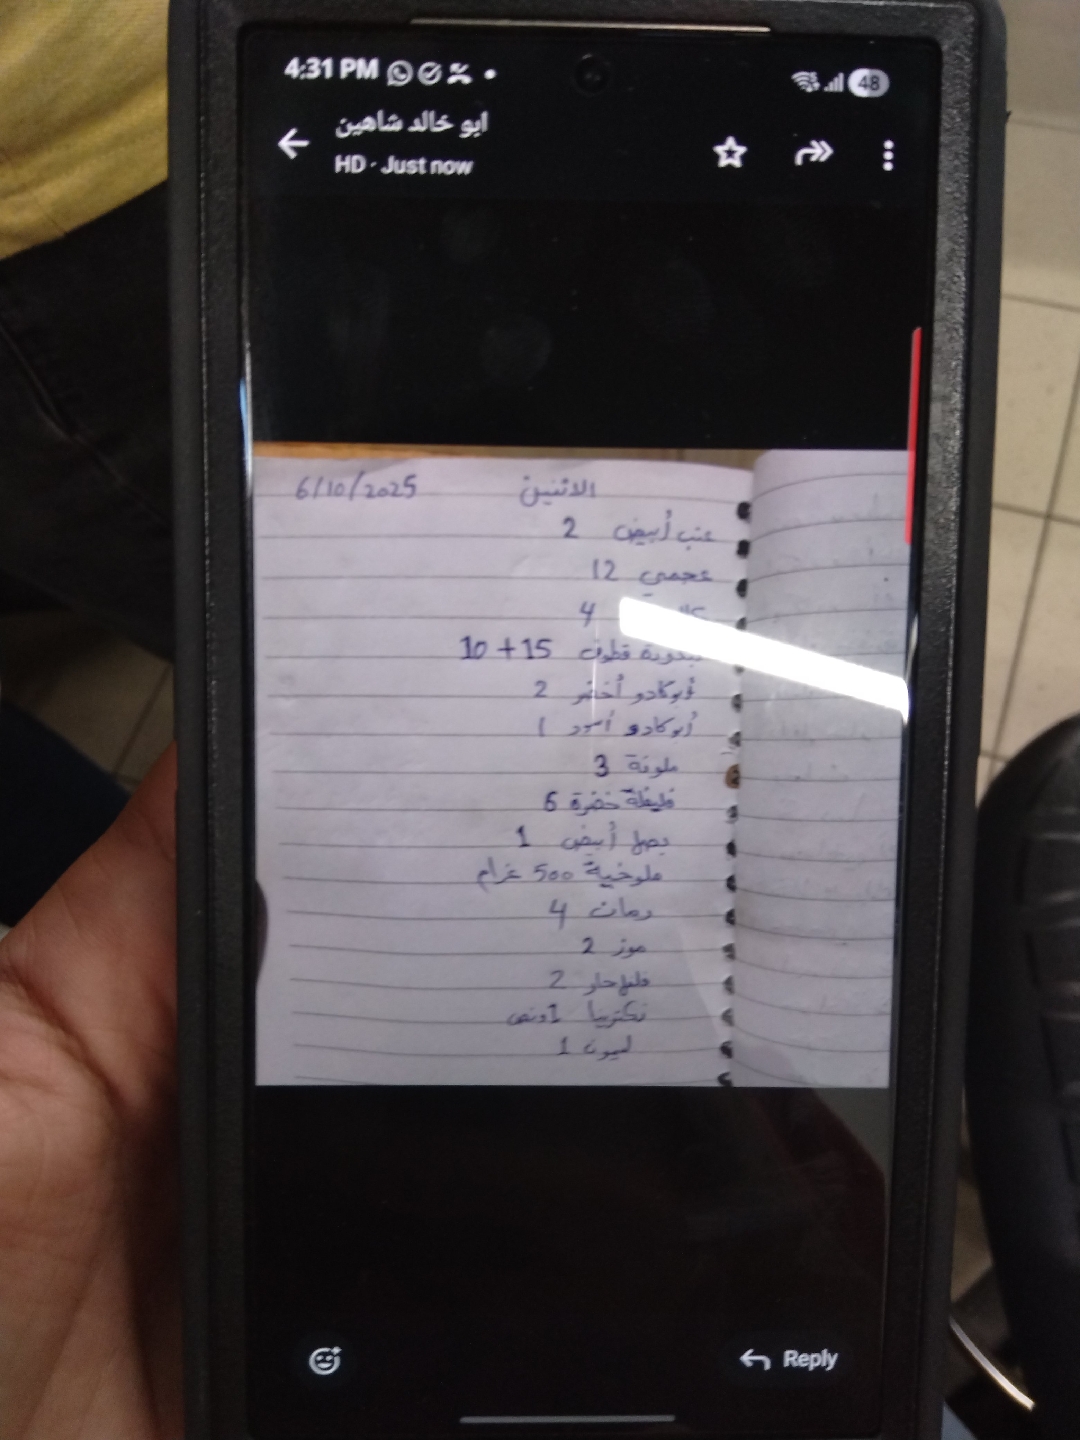 4:31 PM
48
ابو خالد شاهين
HD · Just now
الاثنين 6/10/2025
عنب أبيض 2
عجمي 12
4
قطوف 15 + 10
أبوكادو أخضر 2
أبوكادو أسود 1
ملونة 3
فليفلة خضرة 6
بصل أبيض 1
ملوخية 500 غرام
رمان 4
موز 2
فلفل حار 2
نكتريا 1 ونص
ليمون 1
Reply